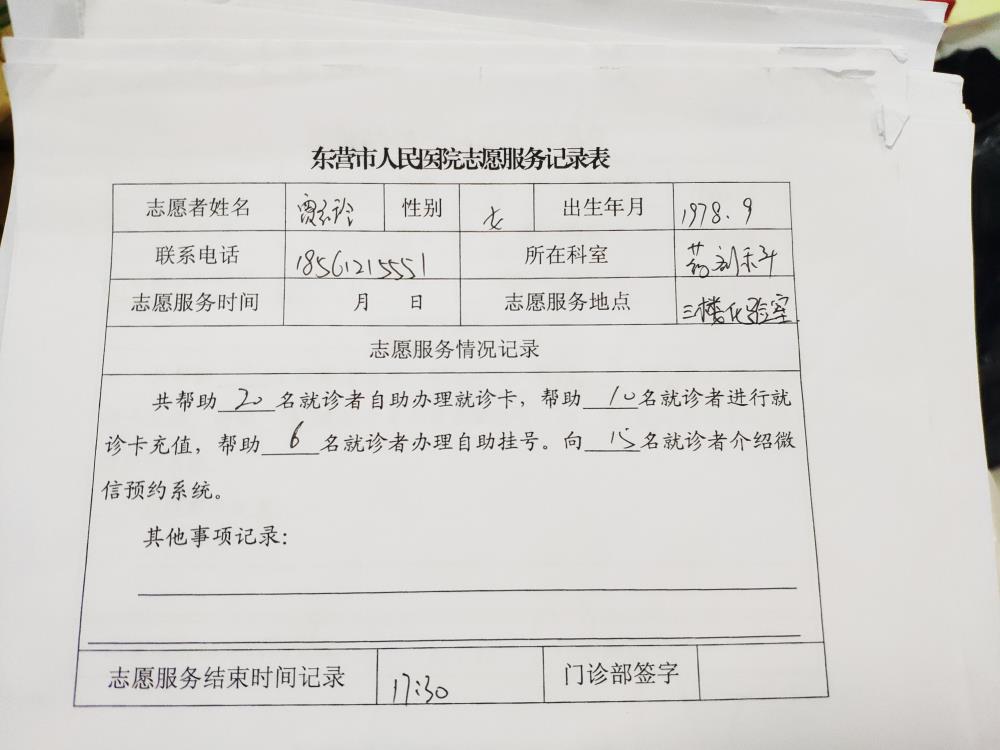 东营市人民医院志愿服务记录表
志愿者姓名 贾 玲 性别 女 出生年月 1978.9
联系电话 18561215551 所在科室 药剂科
志愿服务时间 月 日 志愿服务地点 三楼化验室
志愿服务情况记录
共帮助 20 名就诊者自助办理就诊卡，帮助 10 名就诊者进行就
诊卡充值，帮助 6 名就诊者办理自助挂号。向 15 名就诊者介绍微
信预约系统。
其他事项记录：
志愿服务结束时间记录 17:30 门诊部签字